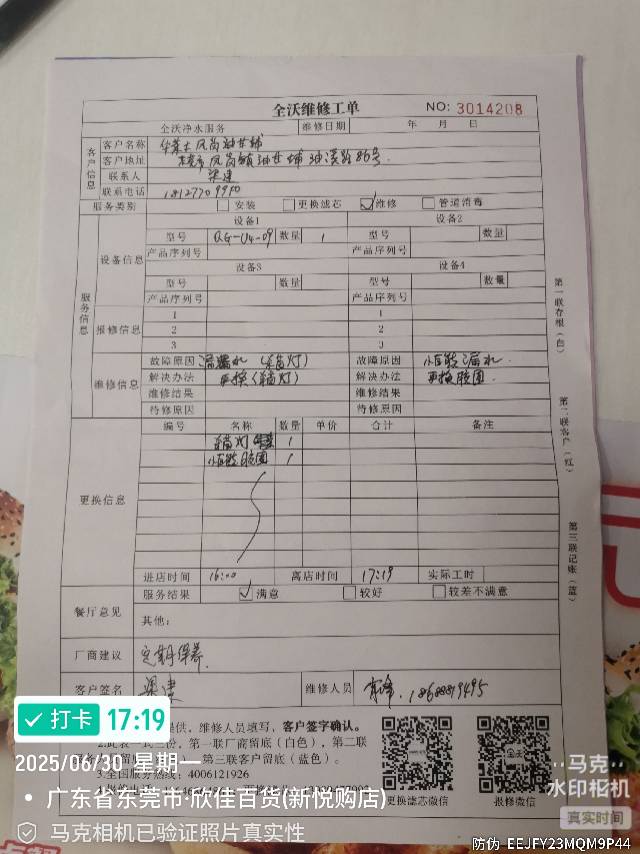 全沃维修工单
NO: 3014208
全沃净水服务 维修日期 年 月 日
客户信息
客户名称 华莱士凤岗油甘埔
客户地址 东莞市凤岗镇油甘埔油溪路86号
联系人 梁建
联系电话 18127709990
服务类别 安装 更换滤芯 维修 管道消毒
服务信息
设备信息
设备1 设备2
型号 QG-U4-09 数量 1 型号 数量
产品序列号 产品序列号
设备3 设备4
型号 数量 型号 数量
产品序列号 产品序列号
报修信息
1 1
2 2
3 3
维修信息
故障原因 漏水(杀菌灯) 故障原因 漏水
解决办法 更换(杀菌灯) 解决办法 更换胶圈
维修结果 维修结果
待修原因 待修原因
更换信息
编号 名称 数量 单价 合计 备注
杀菌灯 1
胶圈 1
进店时间 16:00 离店时间 17:19 实际工时
餐厅意见
服务结果 满意 较好 较差不满意
其他:
厂商建议 定期保养
客户签名 梁建 维修人员 18688819495
提供,维修人员填写,客户签字确认。
2.此表一式三份,第一联厂商留底(白色),第二联
第三联客户留底(蓝色)。
3.全国服务热线:4006121926
更换滤芯微信 报修微信
第一联存根(白)
第二联客户(红)
第三联记账(蓝)
打卡 17:19
2025/06/30 星期一
广东省东莞市·欣佳百货(新悦购店)
马克相机已验证照片真实性
马克
水印相机
真实时间
防伪 EEJFY23MQM9P44